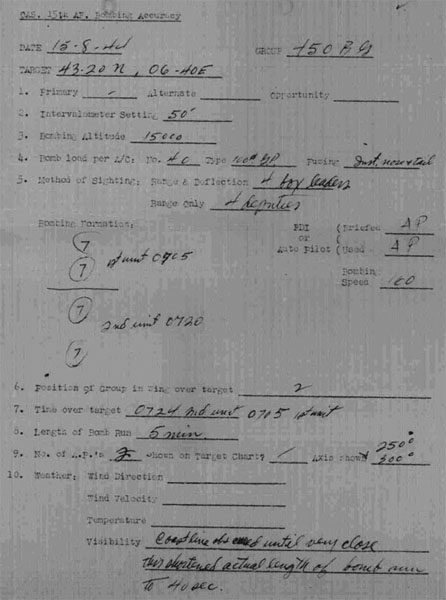 OAS. 15th AF. Bombing Accuracy
DATE 15-8-44 GROUP 450 BG
TARGET 43-20N, 06-40E
1. Primary ✓ Alternate Opportunity
2. Intervalometer Setting 50'
3. Bombing Altitude 15000
4. Bomb load per A/C: No. 40 Type 100# GP Fuzing Inst. nose & tail
5. Method of Sighting: Range & Deflection 4 box leaders
Range Only 4 deputies
Bombing Formation: PDI (Briefed AP
or (
Auto Pilot (Used AP
7
7 1st unit 0705
Bombing
Speed 160
7
2nd unit 0720
7
6. Position of Group in Wing over target 2
7. Time over target 0724 2nd unit 0705 1st unit
8. Length of Bomb Run 5 min
9. No. of A.P.'s 2 Shown on Target Chart? ✓ Axis shown 250°
300°
10. Weather: Wind Direction
Wind Velocity
Temperature
Visibility Coastline obscured until very close
this shortened actual length of bomb run
to 40 sec.